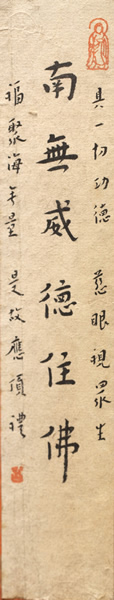 具一切功德 慈眼視眾生
南無威德住佛
福聚海無量 是故應頂禮